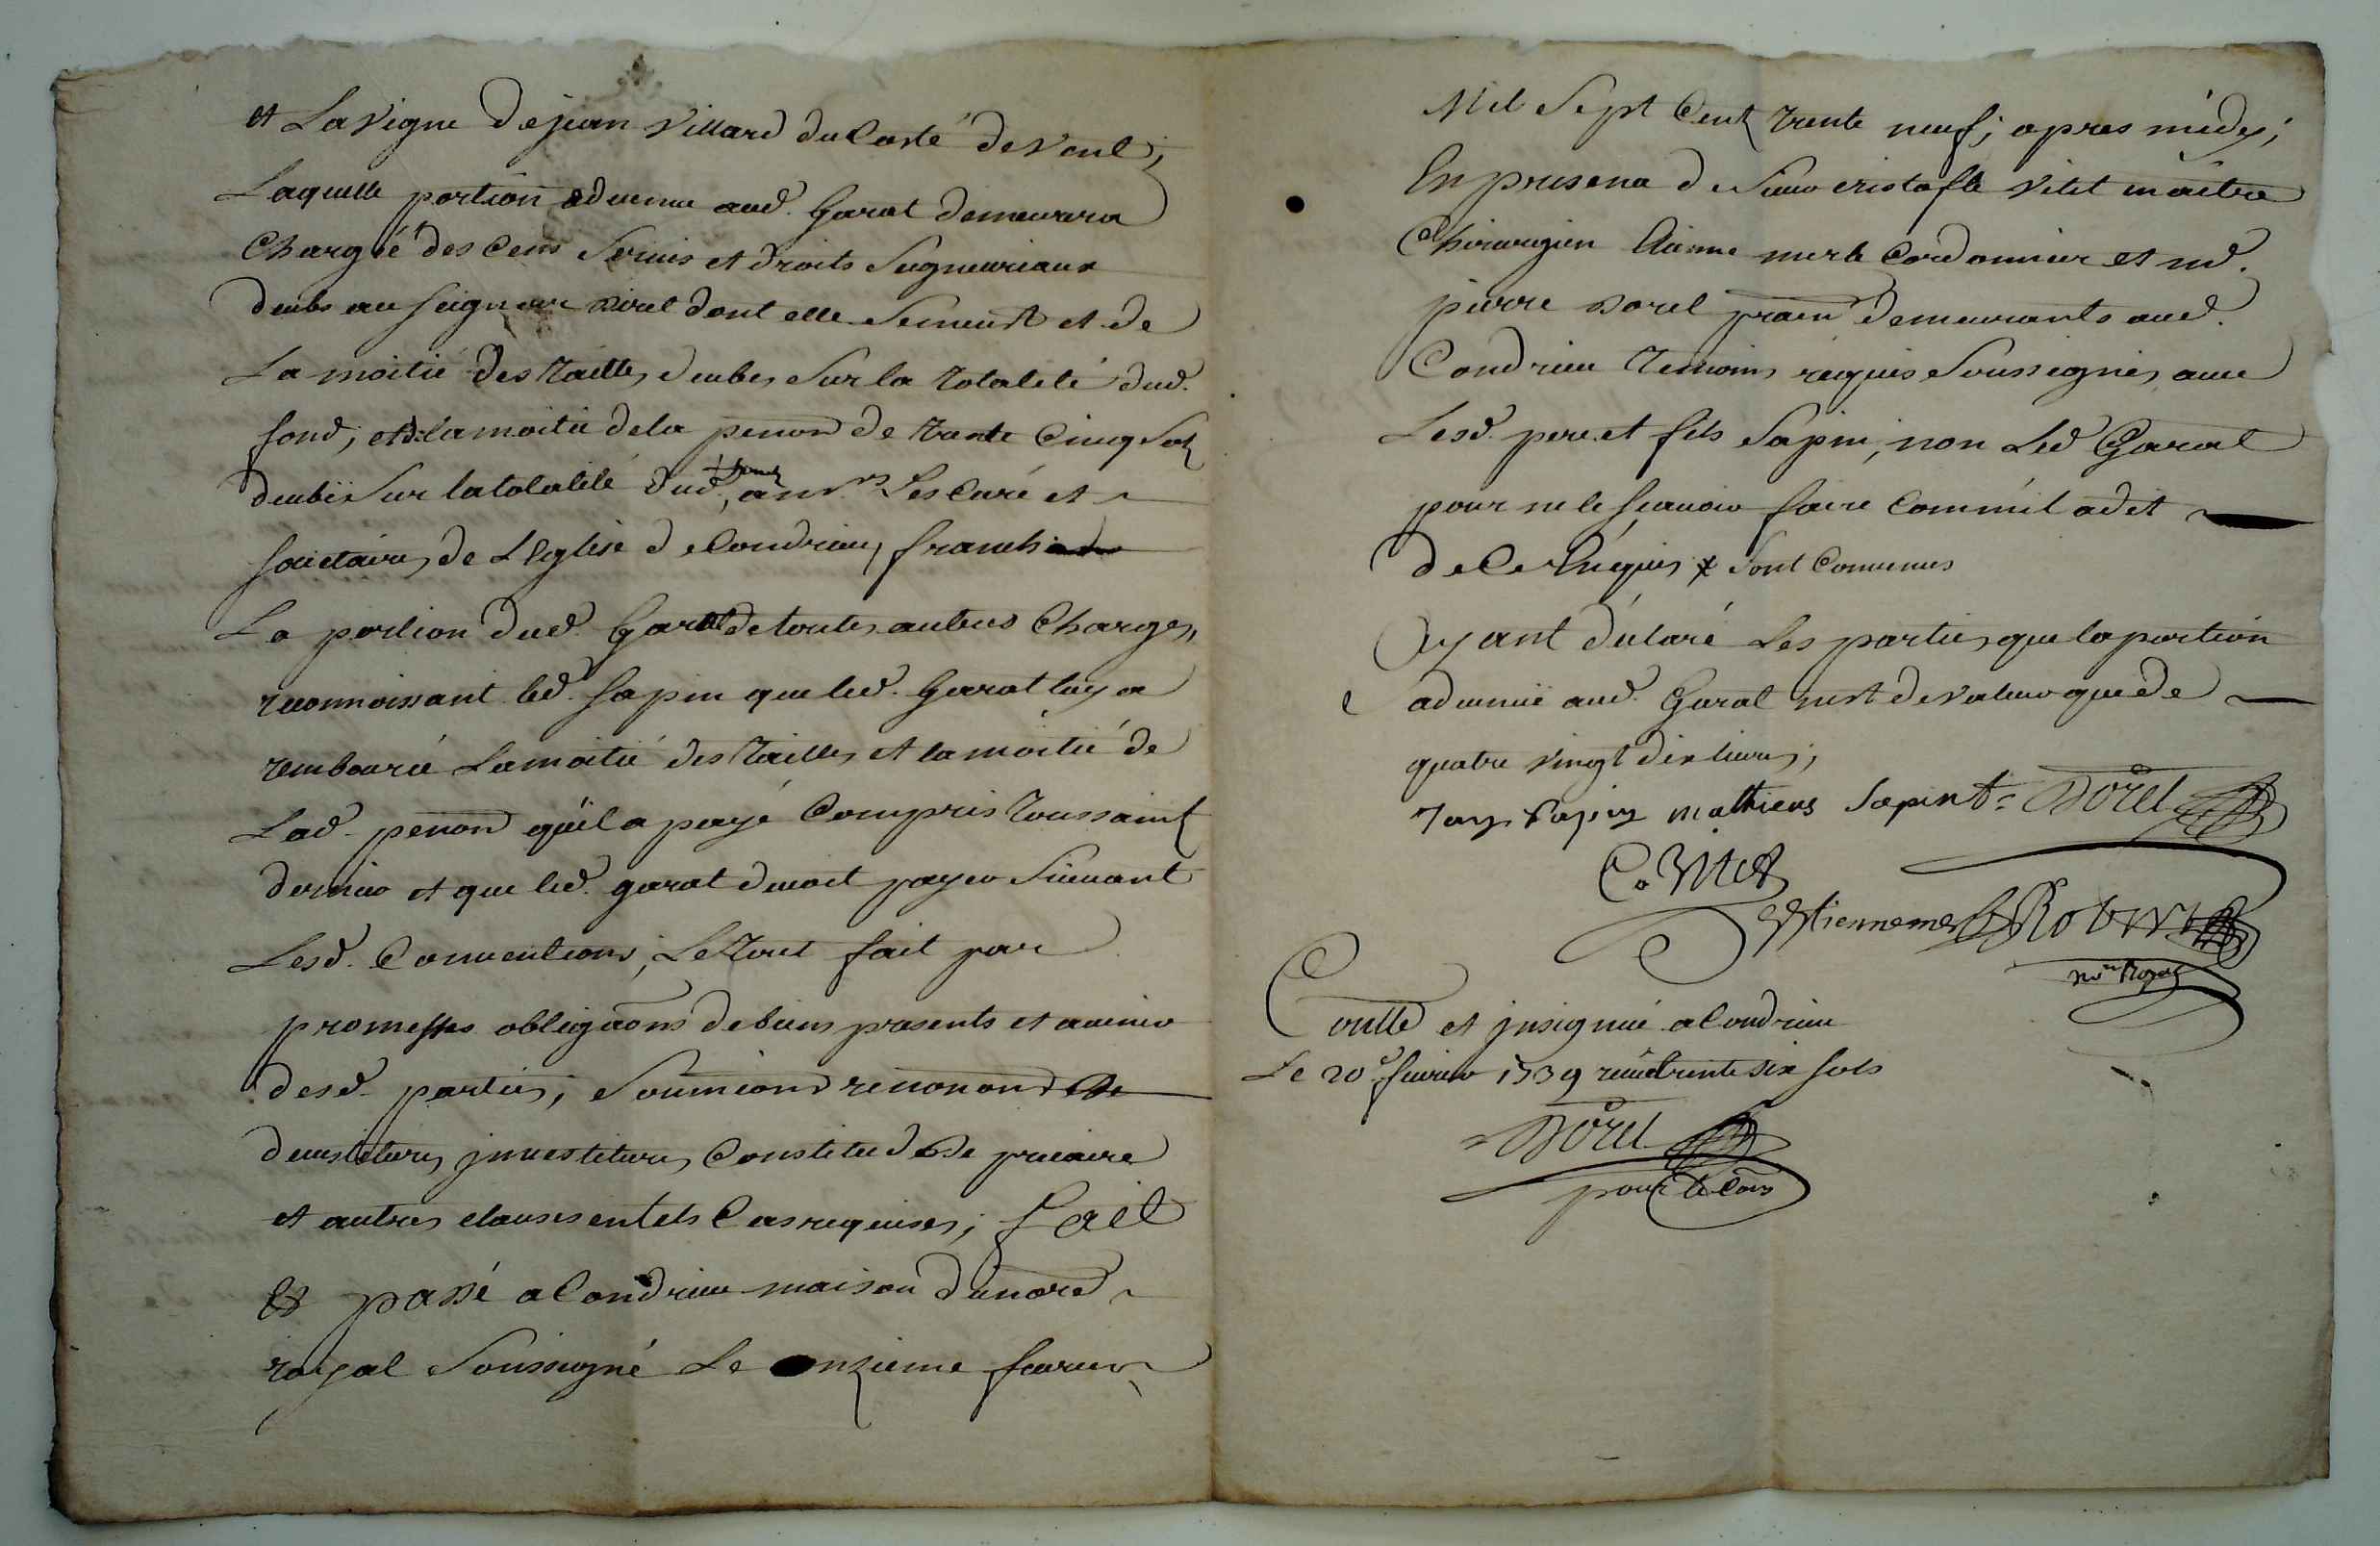 et La Vigne De jean Villard du Costé de vent;
Laquelle portion advenue aud. Garat demeurera
Chargée des Cens Servis et droits Seigneuriaux
deubs au seigneur dont elle se meust et de
La moitié des tailles deubes sur la totalité dud.
fond; et de la moitié de la penon de trente Cinq Solz
deubë sur la totalité dud. fond, a mrs Les Curé et
societaires de L'Eglise de Condrieu, franche
La portion dud. Garat de toutes autres Charges,
reconnoissant led. sapin que led. Garat luy a
remboursé La moitié des tailles et la moitié de
Lad. penon qu'il a payé Compris toussaint
dernier et que led. garat devoit payer Suivant
Lesd. Conventions; Le tout fait par
promesses obligaôns de biens presents et avenir
desd. parties; Soumions renonons
devestitures jnvestitures Constitu de precaire
et autres clauses en tels Cas requises; fait
Et passé a Condrieu maison du nore
royal Soussigné Le onzieme fevrier
Mil Sept Cent trente neuf; apres midy;
En presence de Sieur cristofle Vitet maitre
Chirurgien Etienne merle Cordonnier et md.
pierre Dorel praen demeurants aud.
Condrieu temoins requis Soussignés avec
Lesd. pere et fils Sapin, non Led Garat
pour ne le sçavoir faire Comm'il a dit
de Ce Enquis x Sont Convenus
Ayant déclaré Les parties que la portion
advenuë aud. Garat n'est de valeur que de
quatre vingt dix livres;
mathieus Sapint = Dorel
C. Vitet
Estienne merle Robin
nore Royal
Conllé et jnsignué a Condrieu
Le 20e fevrier 1739 reçu trente six sols
Dorel
pour le Com